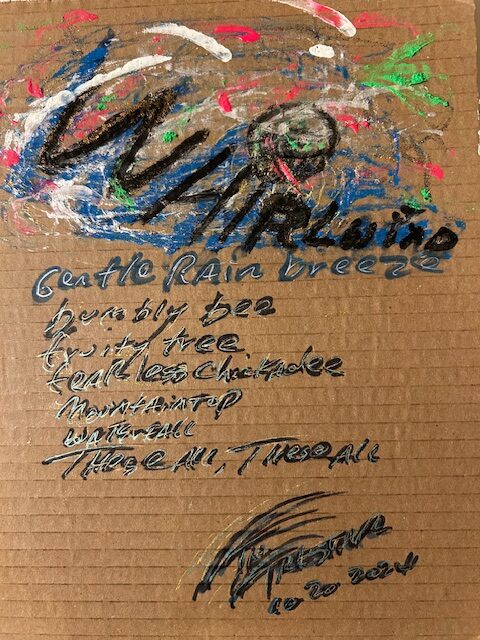 WHIRLwind
Gentle RAin breeze
bumbly bee
fruity tree
fearless chickadee
Mountaintop
WATERFALL
Those All, These All
10 20 2024